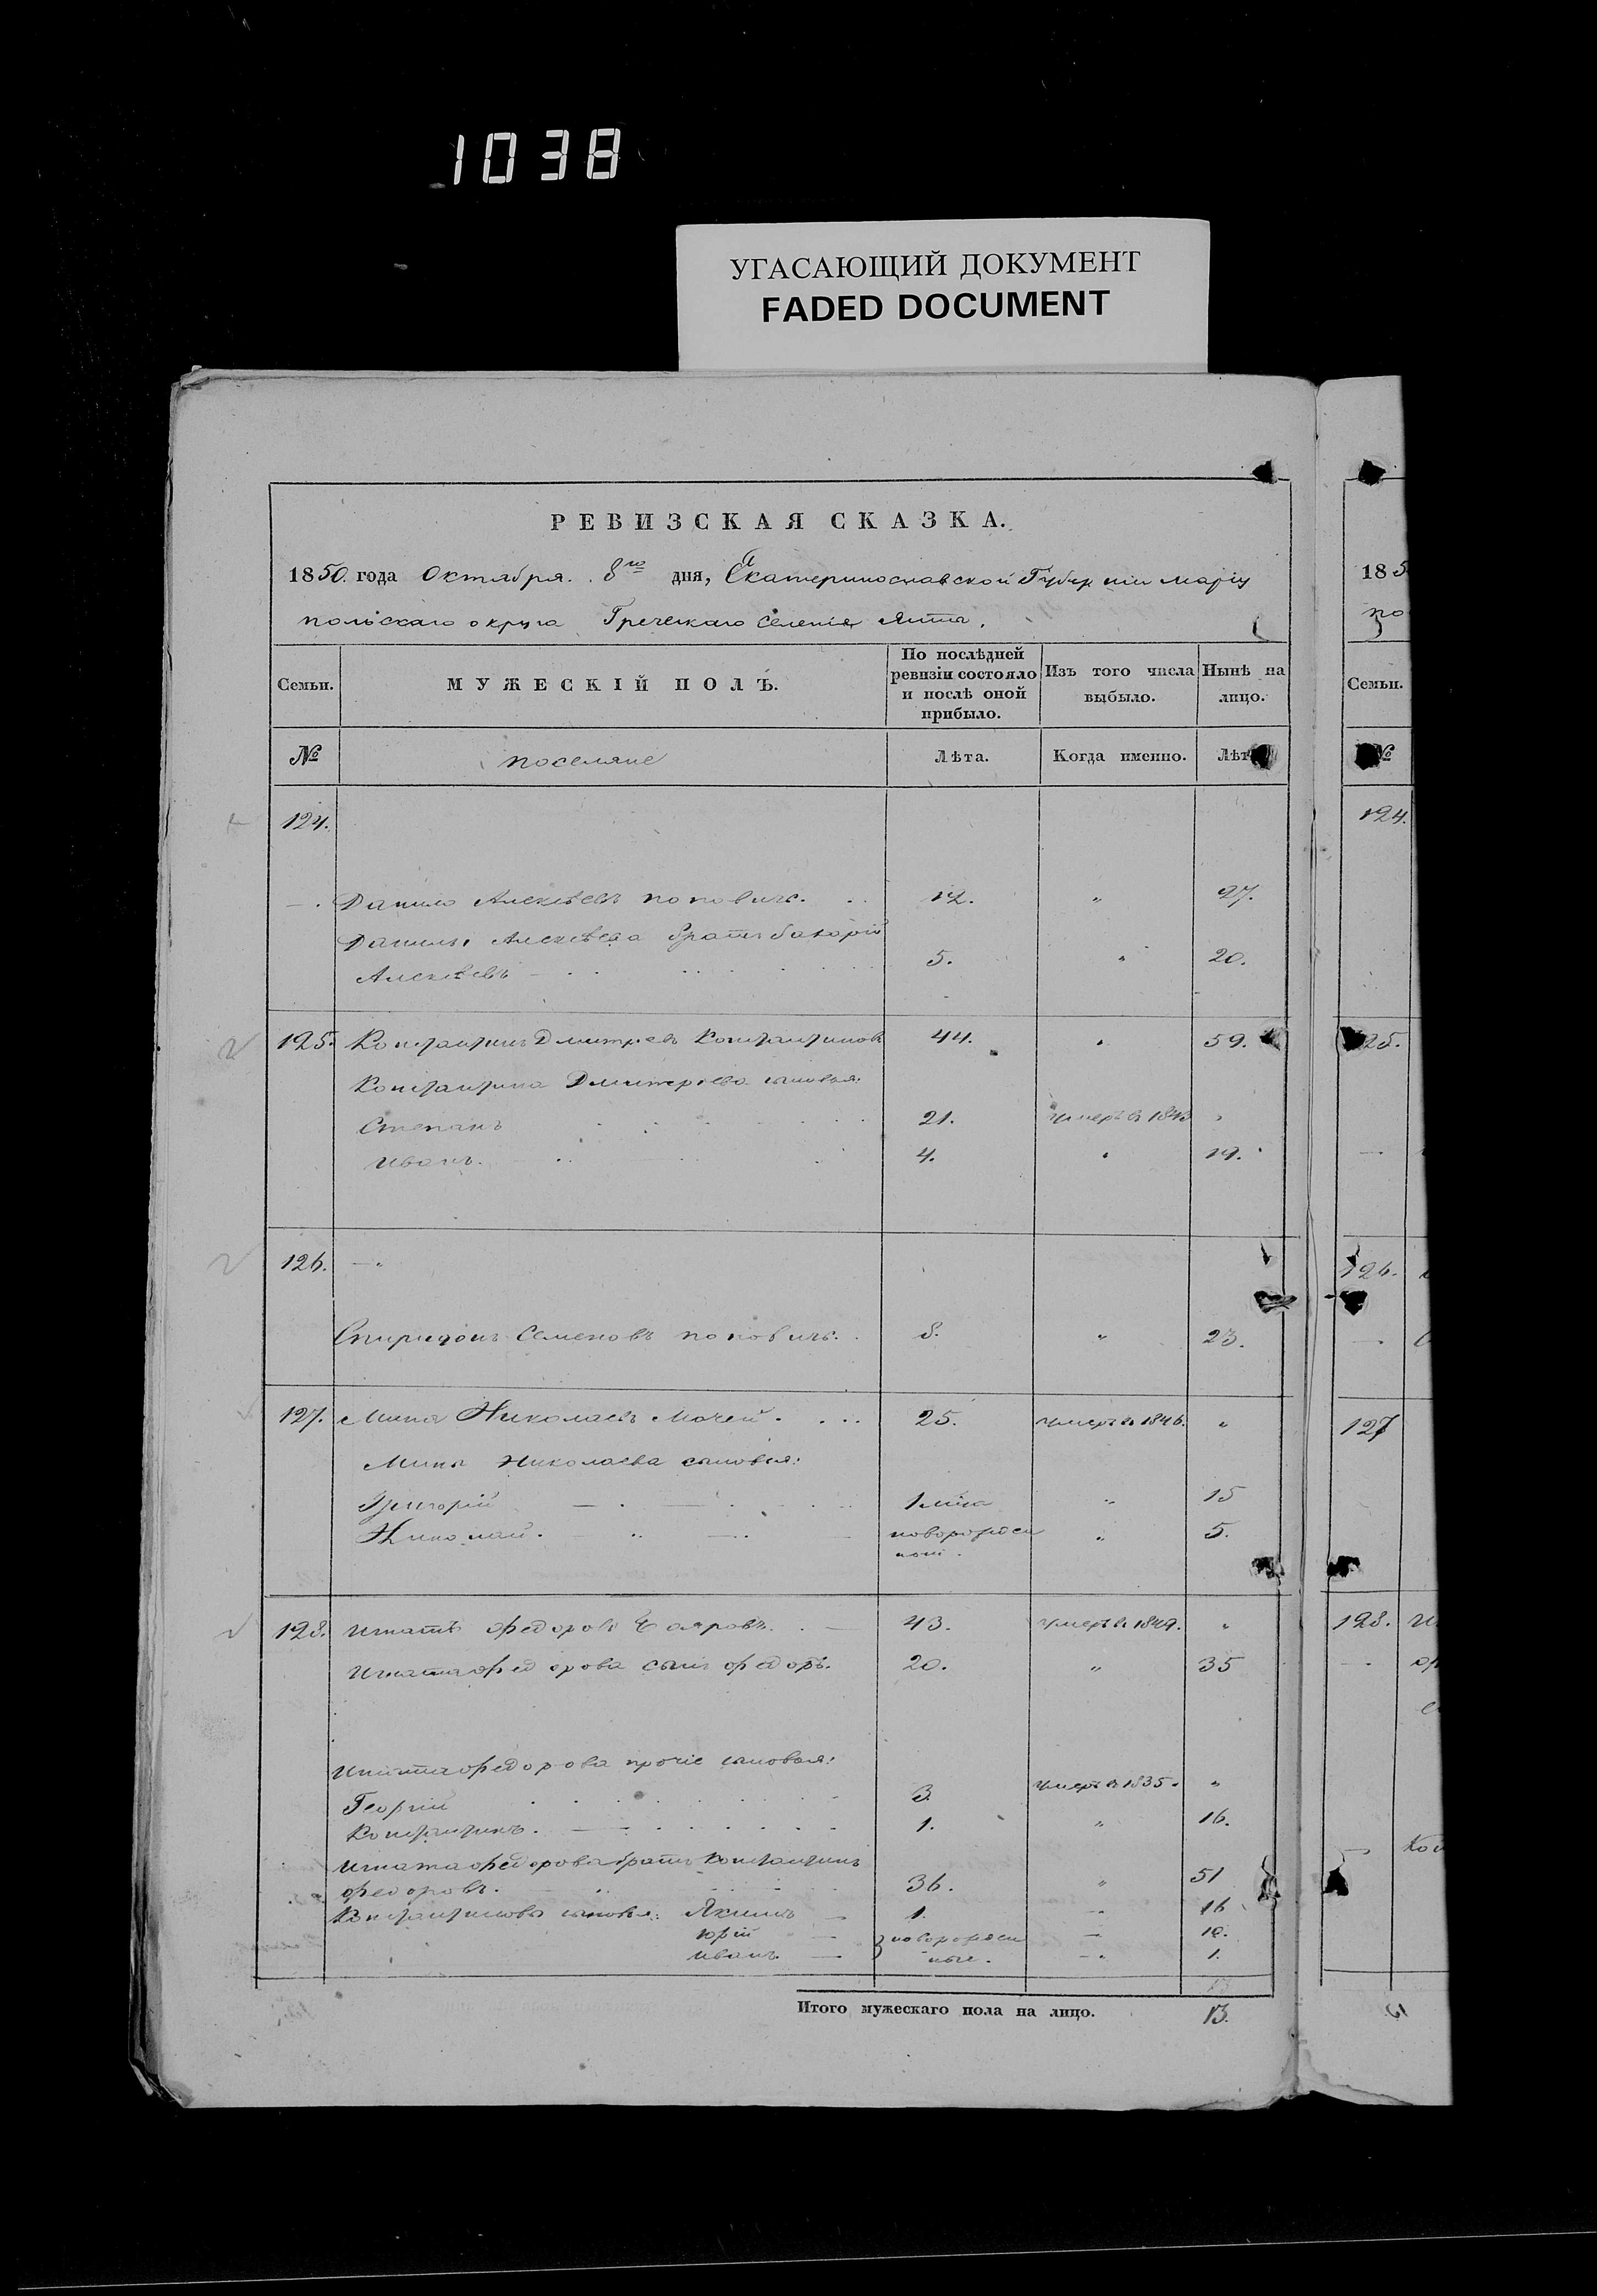 1038
УГАСАЮЩИЙ ДОКУМЕНТ
FADED DOCUMENT
РЕВИЗСКАЯ СКАЗКА.
1850. года Октября 8го дня, Екатеринославской Губерніи Маріу
польскаго округа Греческаго Селенія Ялты.
Семьи. МУЖЕСКІЙ ПОЛЪ. По послѣдней ревизіи состояло и послѣ оной прибыло. Изъ того числа выбыло. Нынѣ на лицо.
№ поселяне Лѣта. Когда именно. Лѣт
124.
Данило Алексѣевъ Поповичъ. 12. " 27.
Данилы Алексѣева братъ
Алексѣевъ 5. " 20.
125. Константинъ Дмитріевъ Константиновъ 44. " 59.
Константина Дмитріева сыновья:
Степанъ 21. умеръ в 1843 "
Иванъ. 4. " 19.
126.
Спиридонъ Семеновъ Поповичъ. 8. " 23.
127. Мина Николаевъ Мочей. 25. умеръ в 1846. "
Мины Николаева сыновья:
Григорій 1 " 15
Николай. новорожден " 5.
ной.
128. Игнатъ Федоровъ 43. умеръ в 1849. "
Игната Федорова сынъ Федоръ. 20. " 35
Игната Федорова прочіе сыновья:
Георгій 3. умеръ в 1835. "
Константинъ. 1. " 16.
Игната Федорова братъ Константинъ
Федоровъ. 36. " 51
Константиновы сыновья: Якимъ 1. 16
Юрій новорожден 10.
Иванъ. ные. 1.
Итого мужескаго пола на лицо. 13.
185
по
Семьи.
№
124.
125.
126.
127
128.